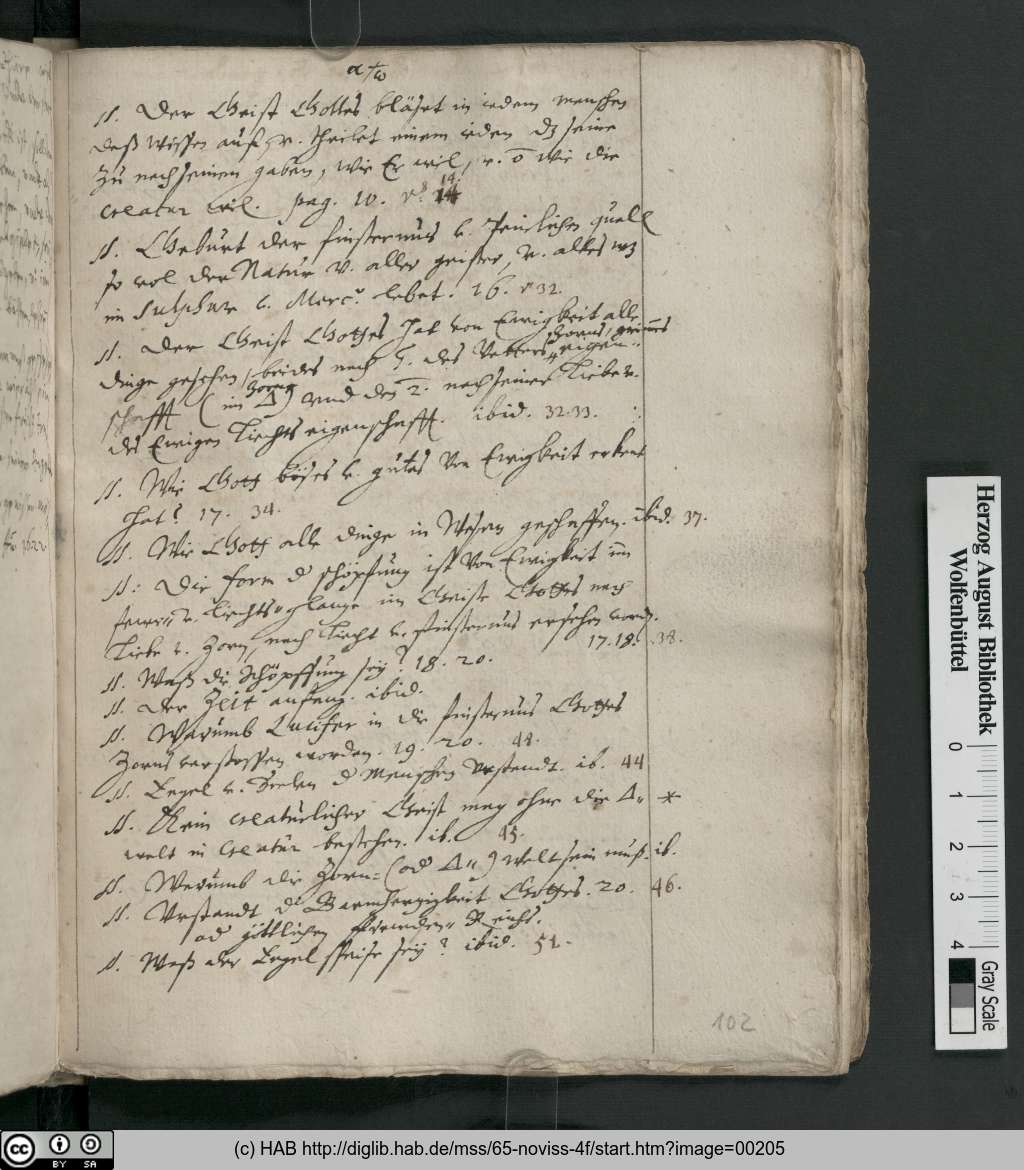 α † ω
//. Der Geist Gottes bläset in iedem menschen
daß wissen auff, v. theilet einem ieden dz seine
zu nach seinen gaben, wie Er wil, v. wie die
creatur wil. pag. 10. vs 14.
//. Geburt der finsternus v. Peinlichen quall
so wol der Natur v. aller geister, v. alles wz
im Sulphur v. Merc. lebet. 16. v 32.
//. Der Geist Gottes hat von Ewigkeit alle
dinge gesehen, beides nach des Vatters Zorns, grimmes eigen=
schafft (im Zorn △) vnd des 2. nach seiner Liebe v.
des Ewigen Liechts eigenschafft. ibid. 32.33.
//. Wie Gott böses v. gutes von Ewigkeit erkent
hat? 17. 34.
//. Wie Gott alle dinge in Wesen geschaffen. ibid. 37.
//: Die form d schöpfung ist von Ewigkeit im
fewr= v. Liechts=glantze im Geiste Gottes nach
Liebe v. Zorn, nach Liecht v. finsternus ersehen word.
17.18. 38.
//. Waß die Schöpffung sey? 18. 20.
//. Der Zeit anfang. ibid.
//. Warumb Lucifer in die finsternus Gottes
Zorns verstossen worden. 19. 20. 41.
//. Engel v. Seelen d Menschen Vrstandt. ib. 44
//. Kein creatürlicher Geist mag ohne die △= *
welt in Creatur bestehen. ib. 45.
//. Warumb die Zorn= (od △=) welt sein muß. ib.
//. Vrstandt d Barmhertzigkeit Gottes. 20. 46.
od göttlichen frewden= Reichs.
//. Waß der Engel speise sey? ibid. 51.
102
Herzog August Bibliothek
Wolfenbüttel
0 1 2 3 4
Gray Scale
BY SA
(c) HAB http://diglib.hab.de/mss/65-noviss-4f/start.htm?image=00205